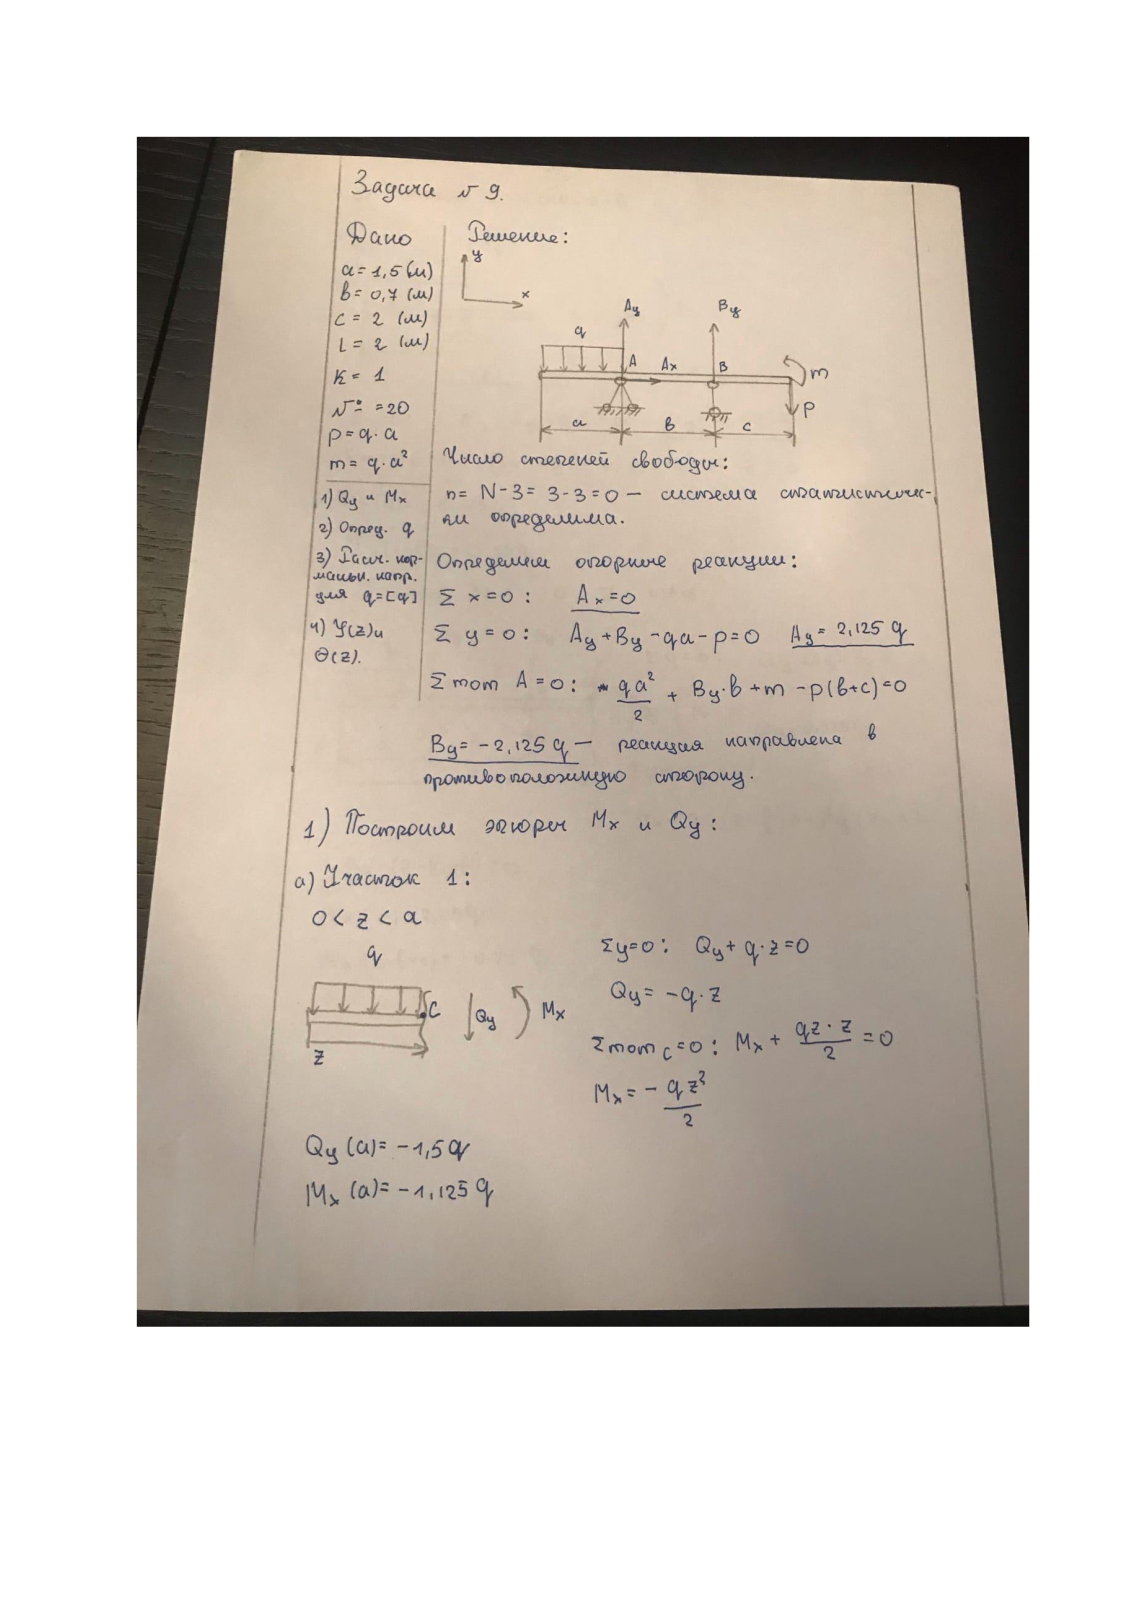 Задача № 9.
Дано
a = 1,5 (м)
b = 0,7 (м)
c = 2 (м)
L = 2 (м)
K = 1
№ = 20
p = q · a
m = q · a²
1) Qy и Mx
2) Опред. q
3) Расч. нор-
мальн. напр.
для q=[q]
4) Y(z) и
Θ(z).
Решение:
y
x
q
Ay
By
A
Ax
B
m
p
a
b
c
Число степеней свободы:
n = N-3 = 3-3 = 0 – система статистичес-
ки определима.
Определяем опорные реакции:
Σ x = 0 : Ax = 0
Σ y = 0 : Ay + By - qa - p = 0 Ay = 2,125 q
Σ mom A = 0 : - qa²/2 + By·b + m - p(b+c) = 0
By = -2,125 q – реакция направлена в
противоположную сторону.
1) Построим эпюры Mx и Qy:
a) Участок 1:
0 < z < a
q
C
Qy
Mx
z
Σy=0 : Qy + q·z = 0
Qy = -q·z
Σmom c = 0 : Mx + qz·z/2 = 0
Mx = - qz²/2
Qy (a) = -1,5 q
Mx (a) = -1,125 q